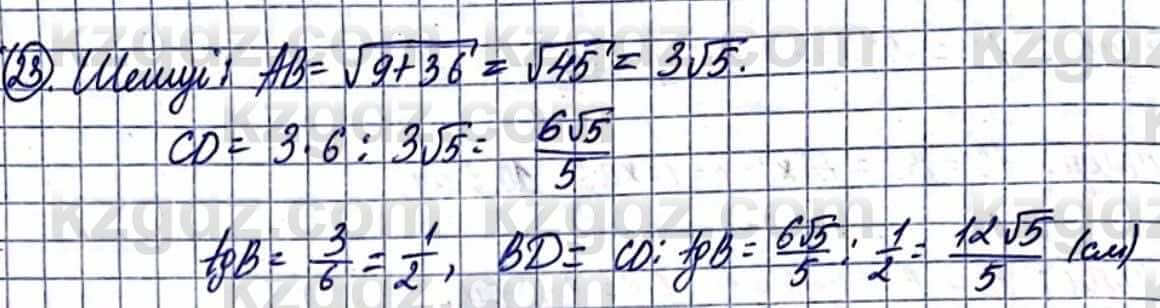 23. Шешуі: AB = √9+36 = √45 = 3√5.
CD = 3·6 : 3√5 = 6√5/5
tgB = 3/6 = 1/2, BD = CD : tgB = 6√5/5 : 1/2 = 12√5/5 (см)